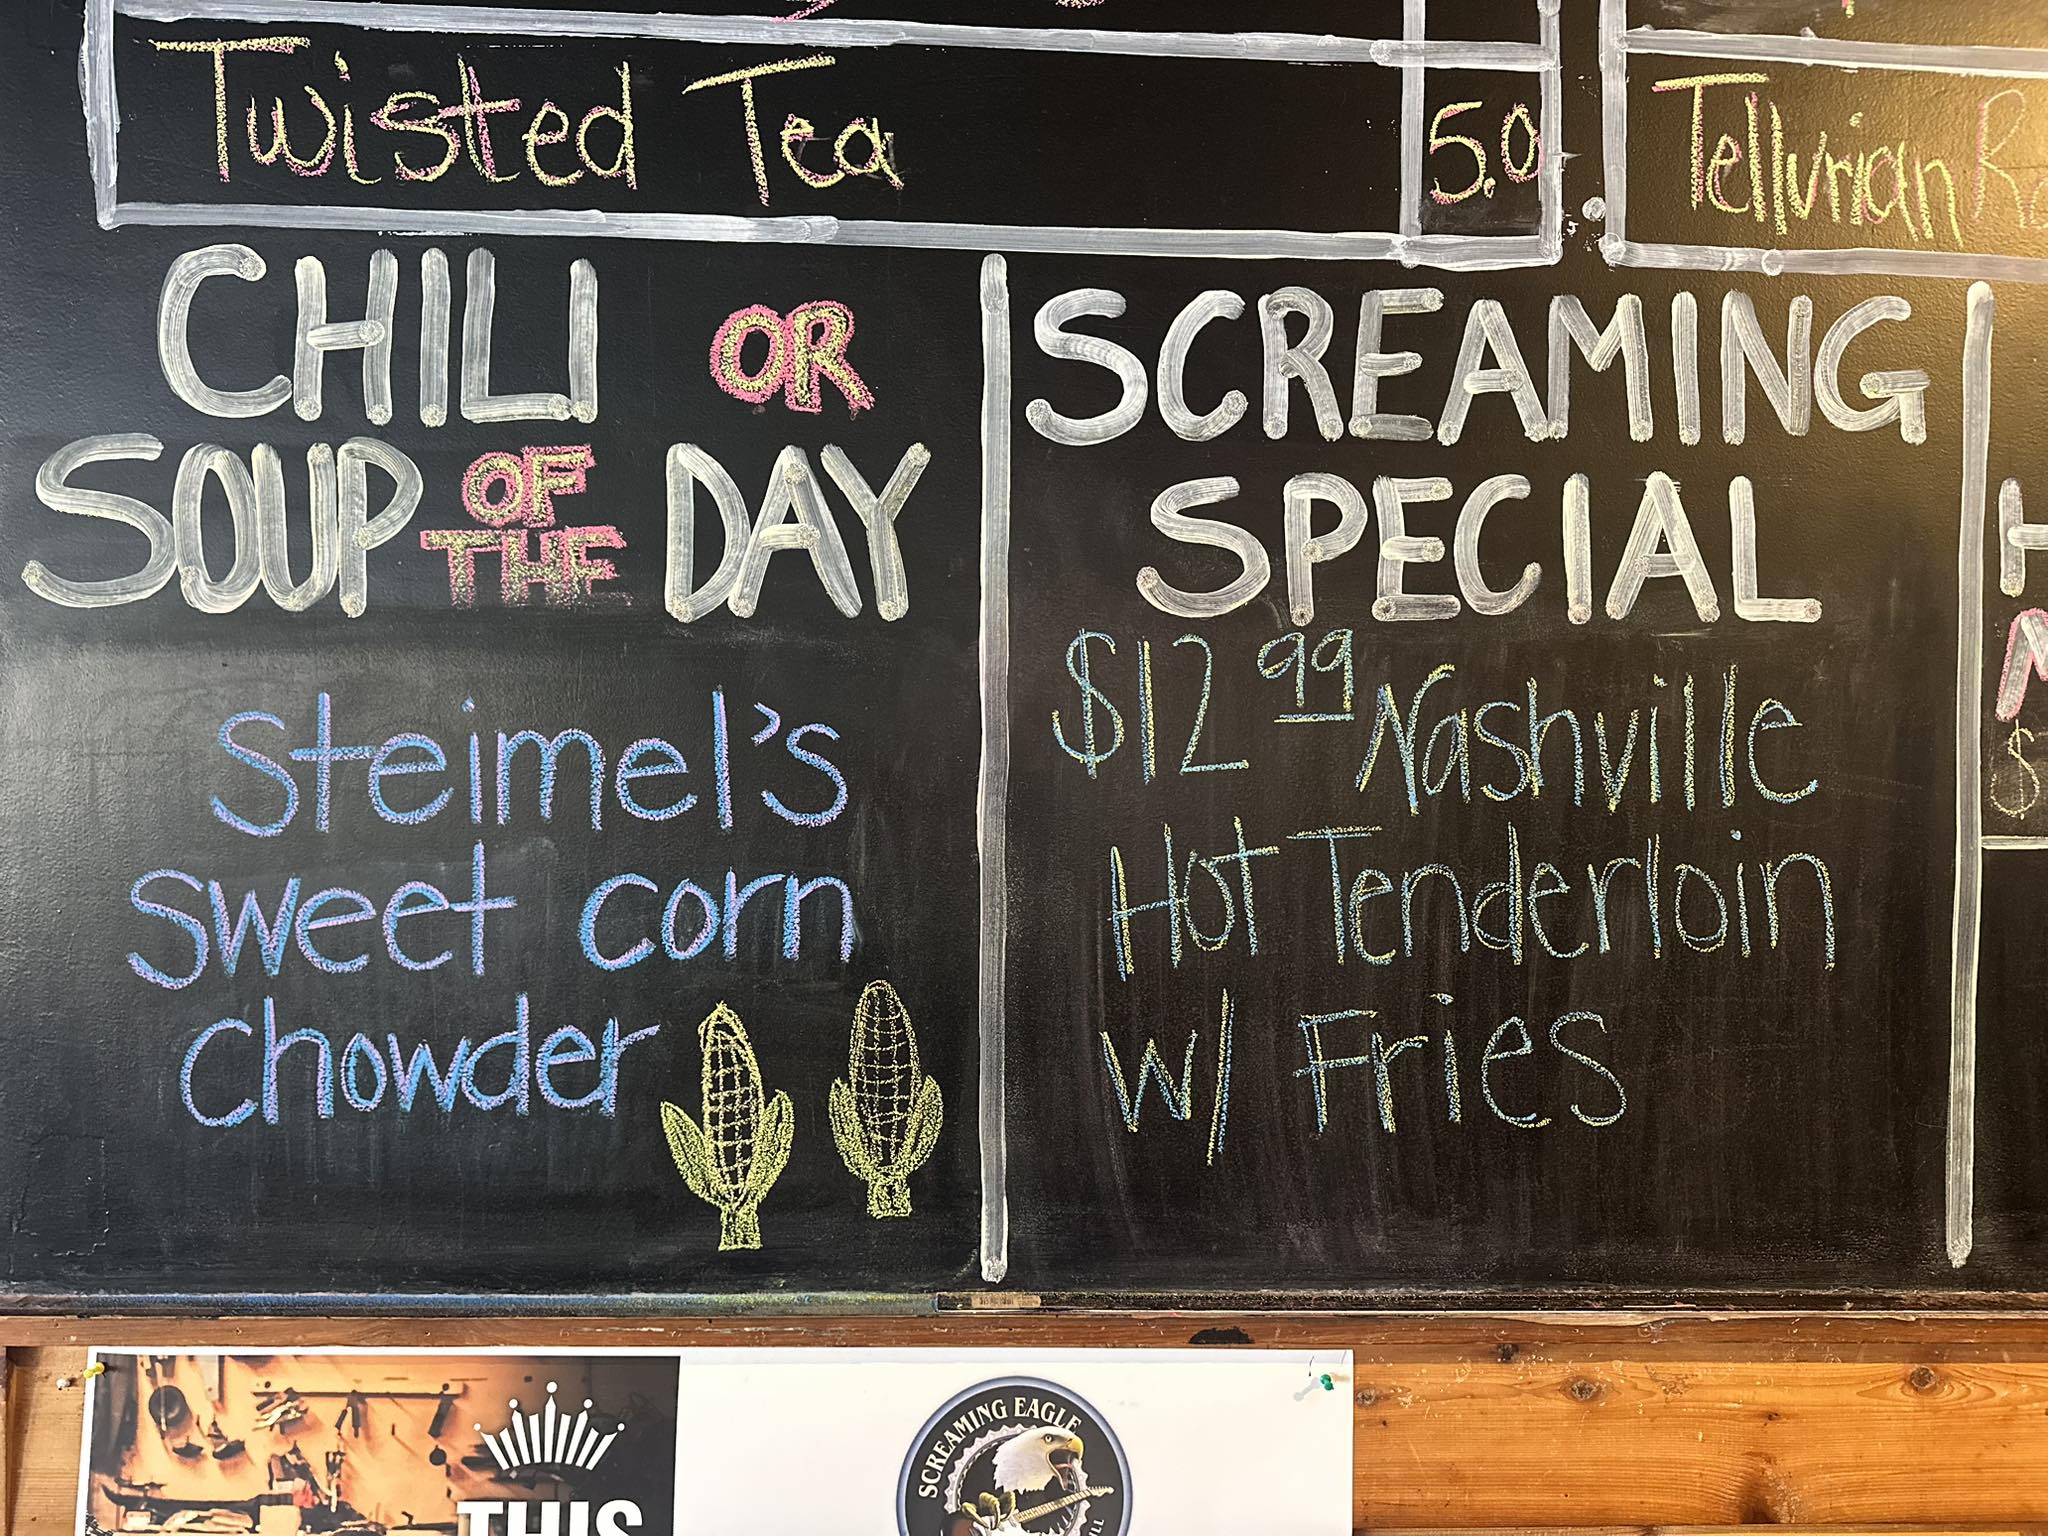 Twisted Tea 5.0
Tellurian
CHILI OR
SOUP OF THE DAY
Steimel's
sweet corn
chowder
SCREAMING
SPECIAL
$12.99 Nashville
Hot Tenderloin
w/ Fries
$
THIS
SCREAMING EAGLE